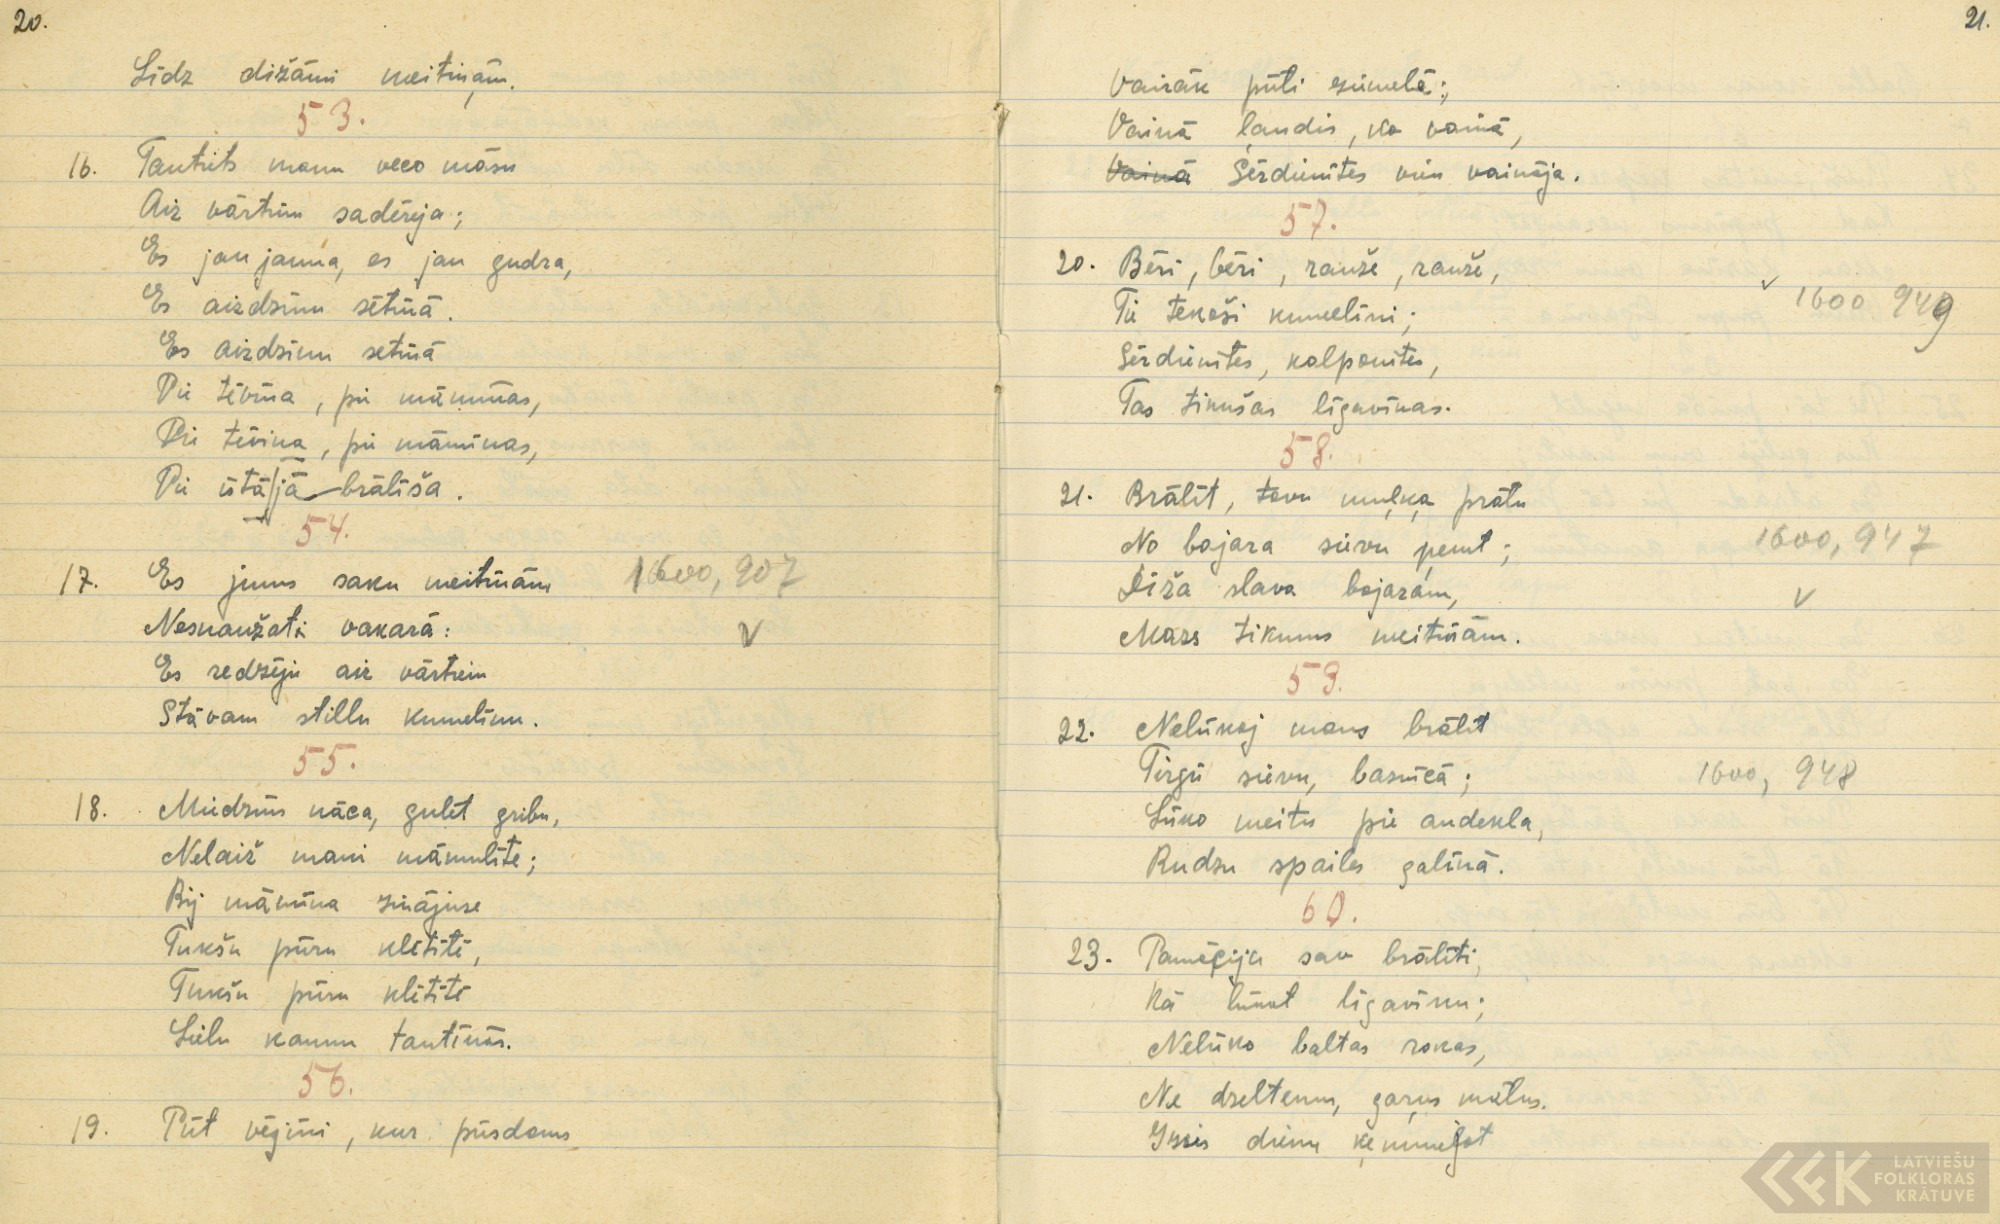 20.
Līdz dižāmi meitiņām.
53.
16. Tautiets manu veco māsu
Aiz vārtim sadēreja;
Es jau jauna, es jau gudra,
Es aizdzinu sētiņā.
Es aizdzinu sētiņā
Pie tēviņa, pie māmiņas,
Pie tēviņa, pie māmiņas,
Pie īstājā brālīša.
54.
17. Es jums saku meitiņām 1600, 907
Nesnaužati vakarā: v
Es redzēju aiz vārtiem
Stāvam stillu kumeliņu.
55.
18. Miedziņš nāca, gulēt gribu,
Nelaiž mani māmulīte;
Bij māmiņa zinājuse
Tukšu pūru klētītē,
Tukšu pūru klētītē
Lielu kaunu tautiņās.
56.
19. Pūt vējiņi, kur pūsdams
21.
Vairāk pūti ziemelē;
Vainā ļaudis, ko vainā,
Vainā Sērdienītes vien vainēja.
57.
20. Bēri, bēri, rauže, rauže,
v 1600 949
Tie tekoši kumeliņi;
Sērdienītes, kalponītes,
Tas tikušas līgaviņas.
58.
21. Brālīt, tavu muļķa prātu
No bajara sievu ņemt; 1600, 947
Diža slava bajarám, v
Mazs tikums meitiņām.
59.
22. Nelūkoj mans brālīt
Tirgū sievu, basnīcā; 1600, 948
Lūko meitu pie audekla,
Rudzu spailes galiņā.
60.
23. Pamēcija sav brālīti,
Kā lūkot līgaviņu;
Nelūko baltas rokas,
Ne dzeltenus, gaŗus matus.